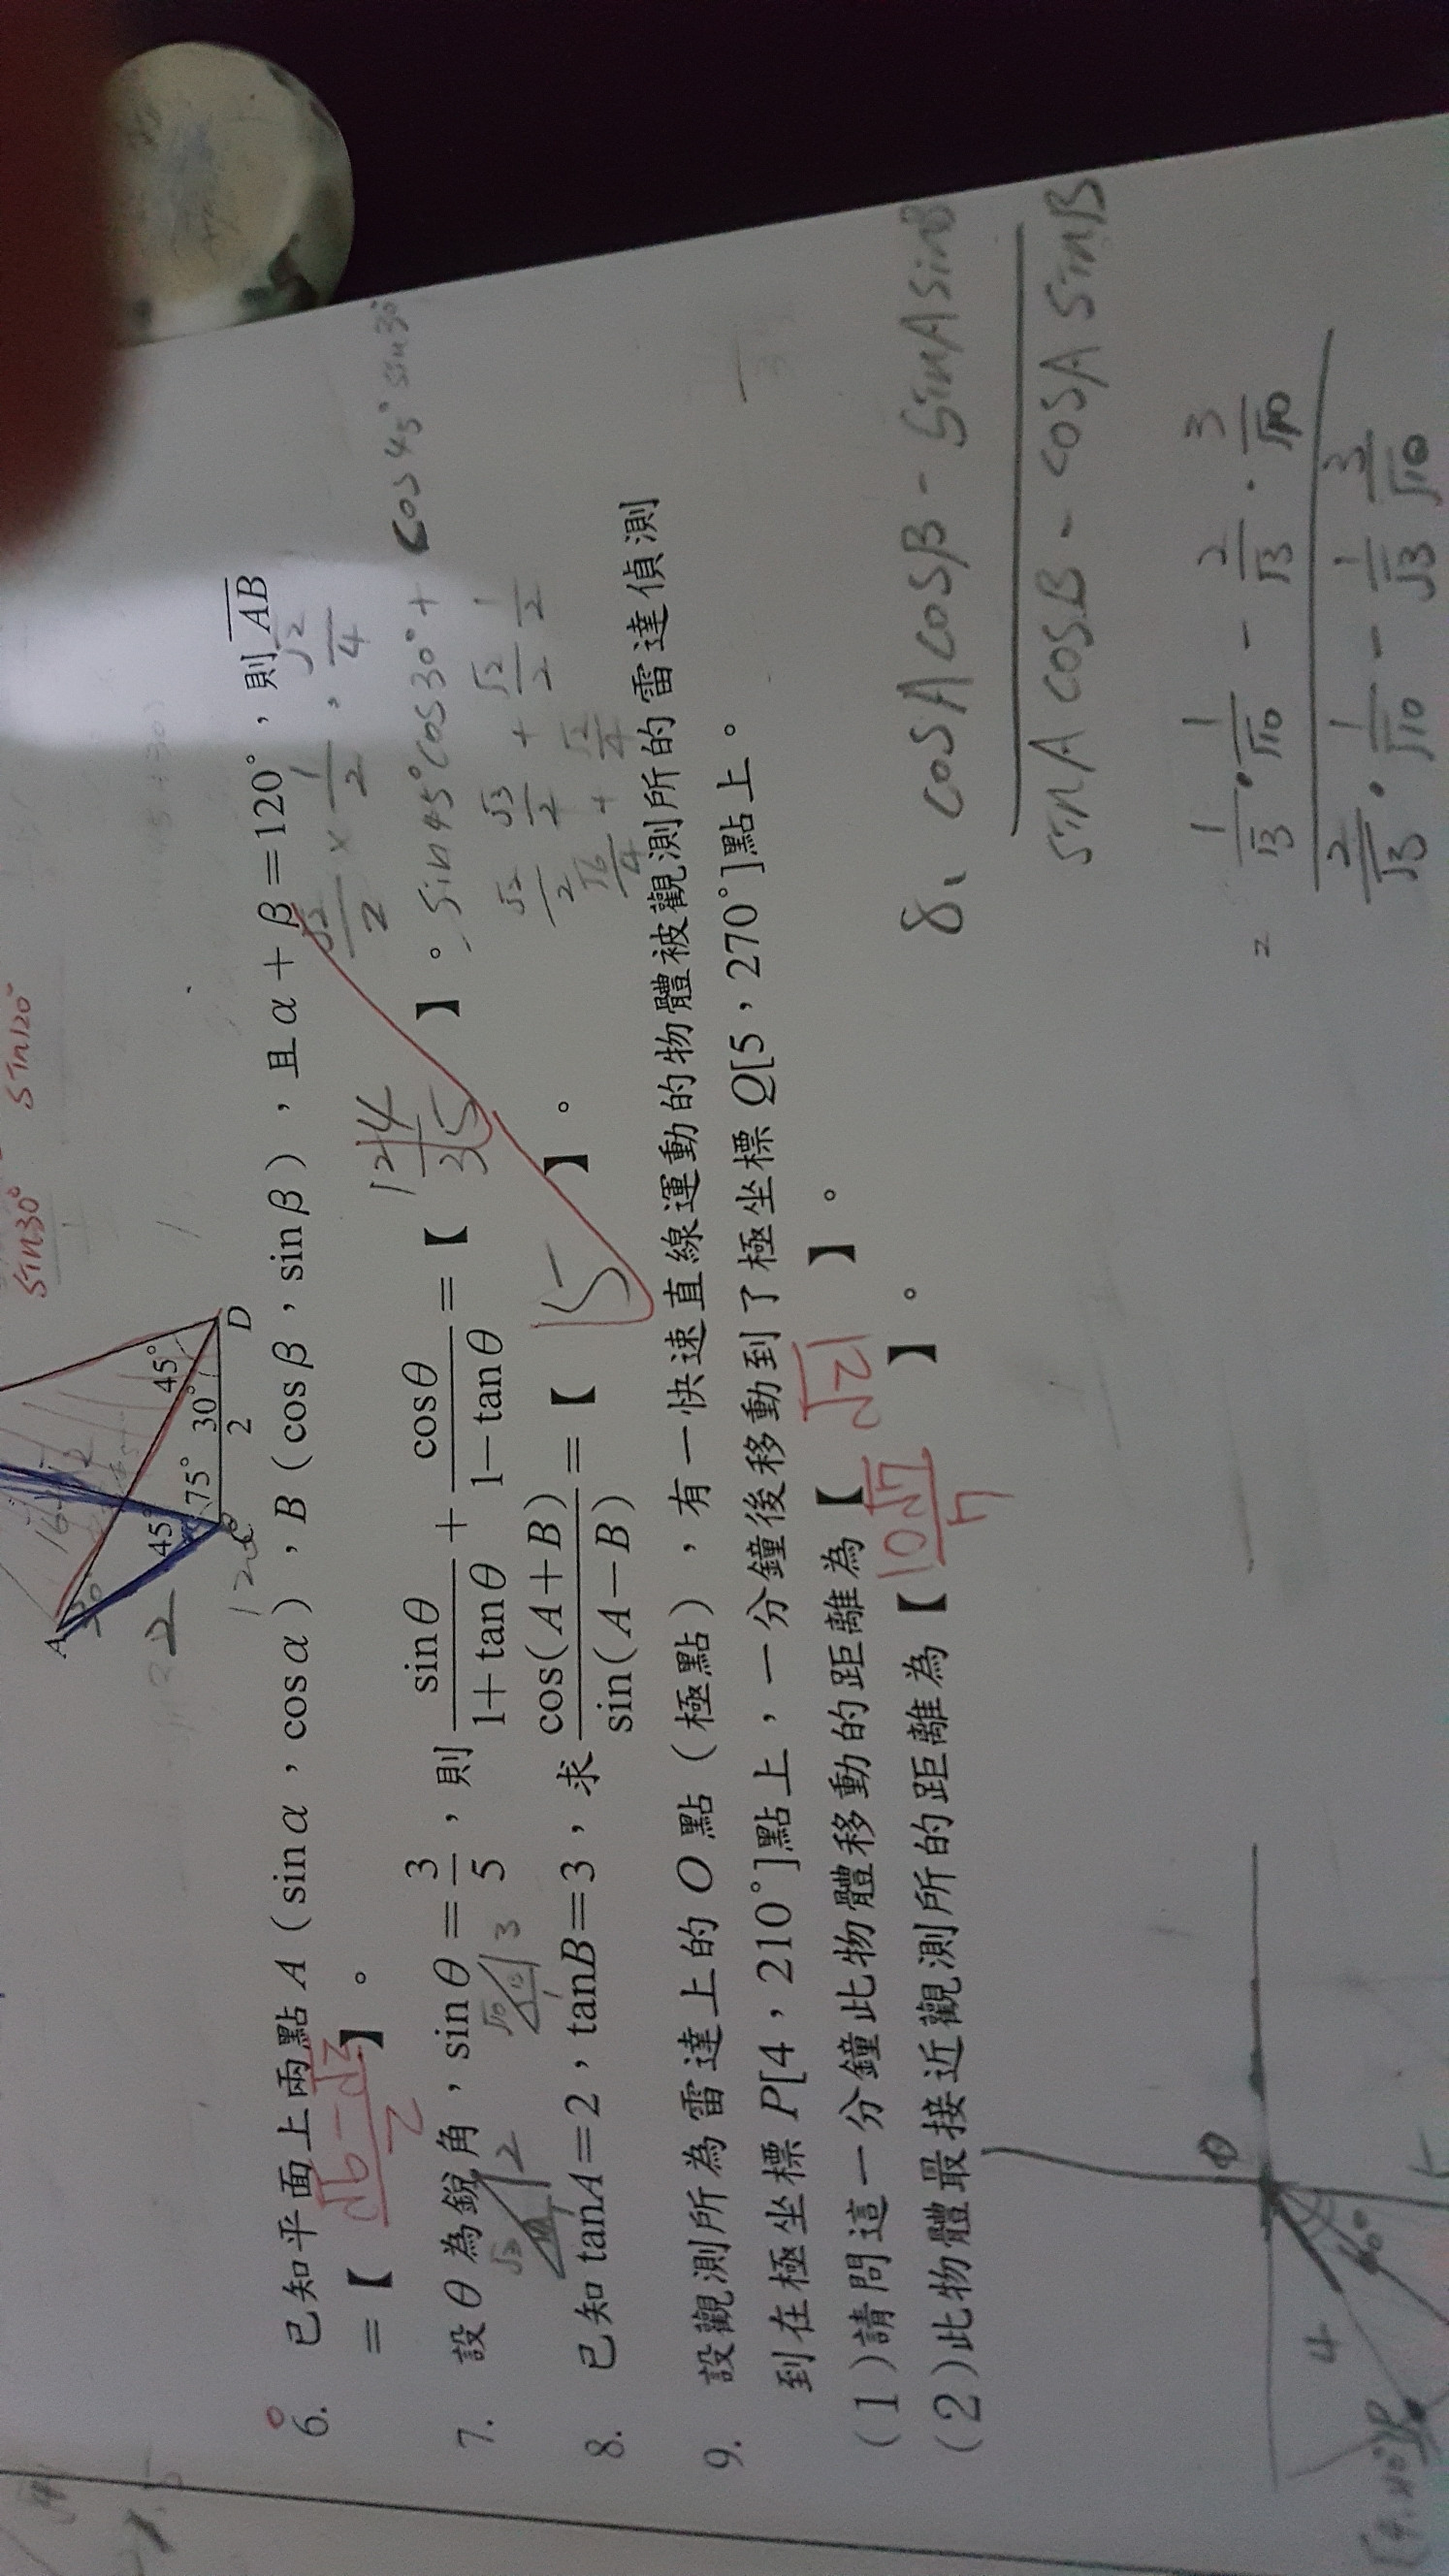 sin30° sin120°
A
45° 75° 30° 45° D
2
6. 已知平面上兩點 A（sinα，cosα），B（cosβ，sinβ），且α＋β＝120°，則AB
＝【 (√6－√2)/2 】。
√2/2 × 1/2，√2/4
7. 設θ為銳角，sinθ＝3/5，則 sinθ/(1＋tanθ) ＋ cosθ/(1－tanθ) ＝【 124/35 】。
sin45°cos30°＋cos45°sin30°
√2/2 √3/2 + √2/2 1/2
√6/4 + √2/4
8. 已知tanA＝2，tanB＝3，求 cos(A＋B)/sin(A－B) ＝【 15 】。
9. 設觀測所為雷達上的O點（極點），有一快速直線運動的物體被觀測所的雷達偵測
到在極坐標P[4，210°]點上，一分鐘後移動到了極坐標Q[5，270°]點上。
(1)請問這一分鐘此物體移動的距離為【 √21 】。
(2)此物體最接近觀測所的距離為【 10√7/7 】。
8、 cosAcosB - sinAsinB
sinAcosB - cosAsinB
= 1/√3 · 1/√10 - 2/√3 · 3/√10
2/√3 · 1/√10 - 1/√3 3/√10
4
60°